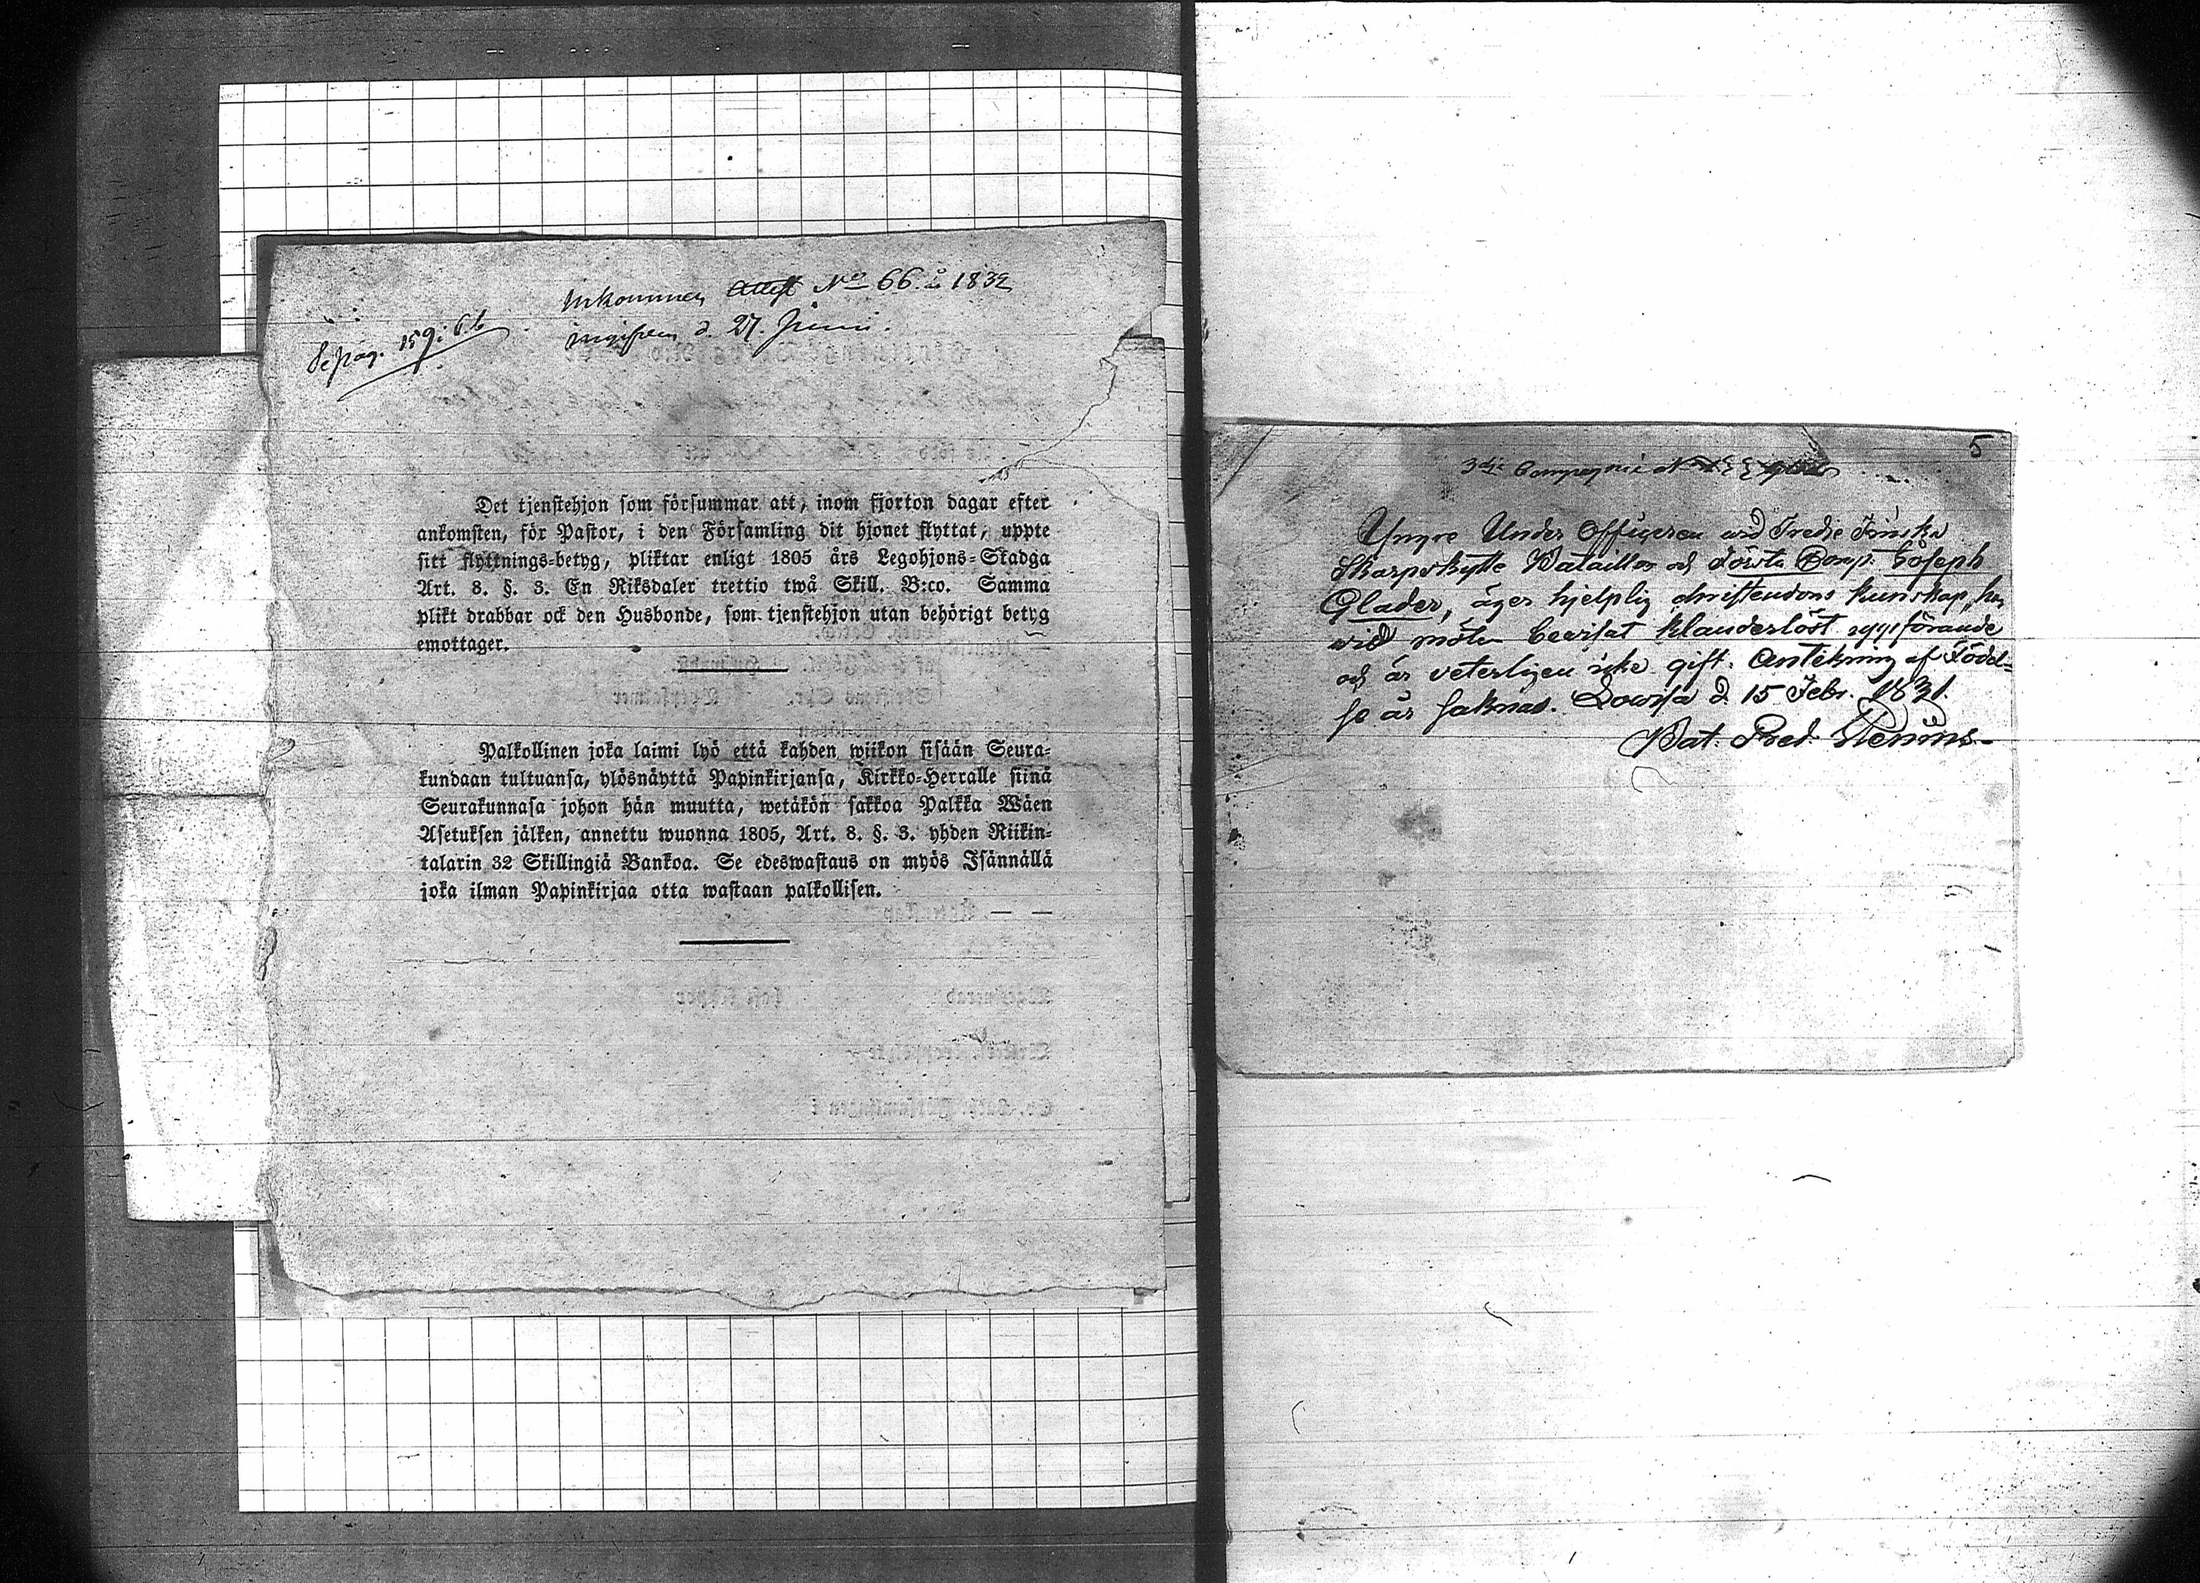 Inkommen Attest No 66. å 1832
ingifven d. 27. Juni.
Se pag. 159: 6.b
Det tjenstehjon som försummar att, inom fjorton dagar efter
ankomsten, för Pastor, i den Församling dit hjonet flyttat, uppte
sitt flyttnings-betyg, pliktar enligt 1805 års Legohjons-Stadga
Art. 8. §. 3. En Riksdaler trettio twå Skill. B:co. Samma
plikt drabbar ock den Husbonde, som tjenstehjon utan behörigt betyg
emottager.
Palkollinen joka laimi lyö että kahden wiikon sisään Seura-
kundaan tultuansa, ylösnäyttä Papinkirjansa, Kirkko-Herralle siinä
Seurakunnasa johon hän muutta, wetäkön sakkoa Palkka Wäen
Asetuksen jälken, annettu wuonna 1805, Art. 8. §. 3. yhden Riikin-
talarin 32 Skillingiä Bankoa. Se edeswastaus on myös Isännällä
joka ilman Papinkirjaa otta wastaan palkollisen.
5
3dje Compagnie
Yngre Under Officeren wid Tredje Finska
Skarpskytte Bataillon och Första Comp: Joseph
Glader, äger hjelplig christendoms kunskap, har
wid möten bewisat klanderlöst uppförande
och är veterligen icke gift. Antekning af Födel-
se år saknas. Lowisa d. 15 Febr. 1831.
Bat. Pred.